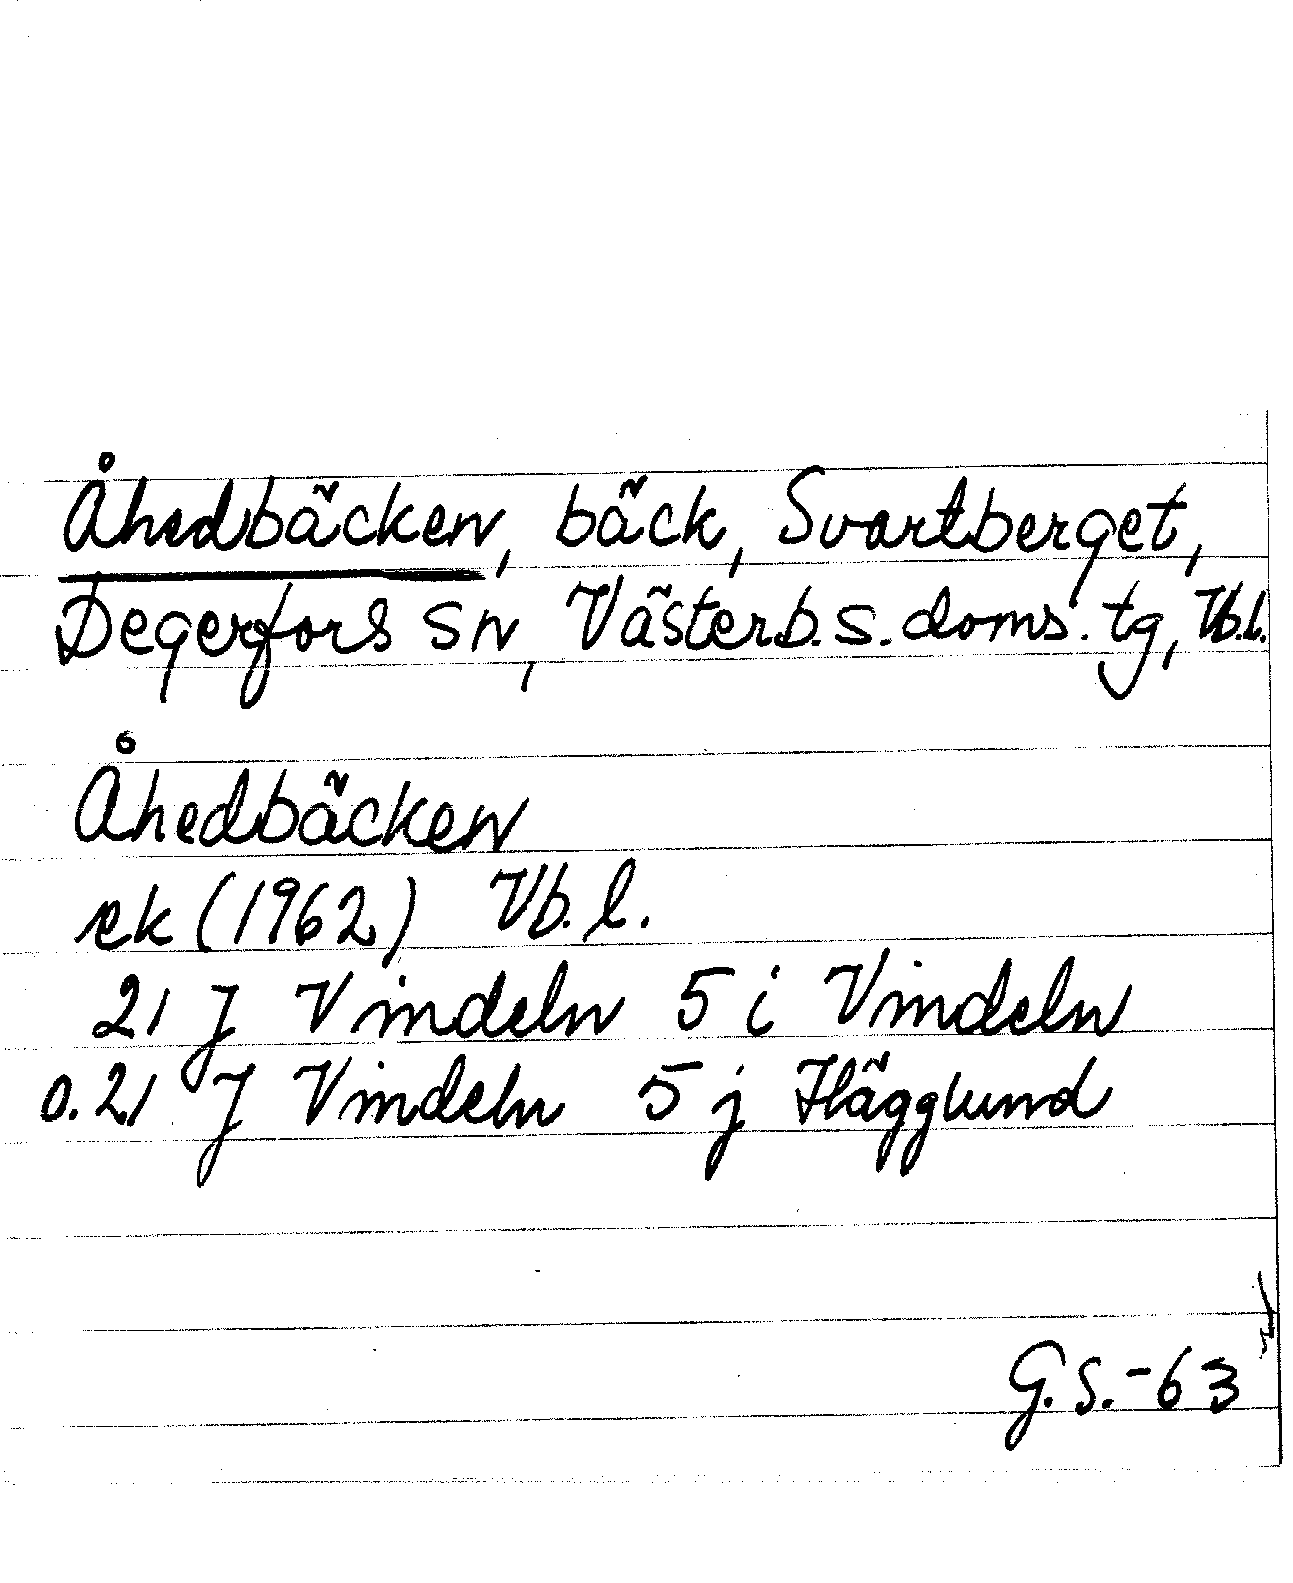 Åhedbäcken, bäck, Svartberget,
Degerfors sn, Västerb. s. doms. tg, Vb.l.
Åhedbäcken
ek (1962) Vb. l.
21 J Vindeln 5 i Vindeln
o. 21 J Vindeln 5 j Hägglund
G. S. -63